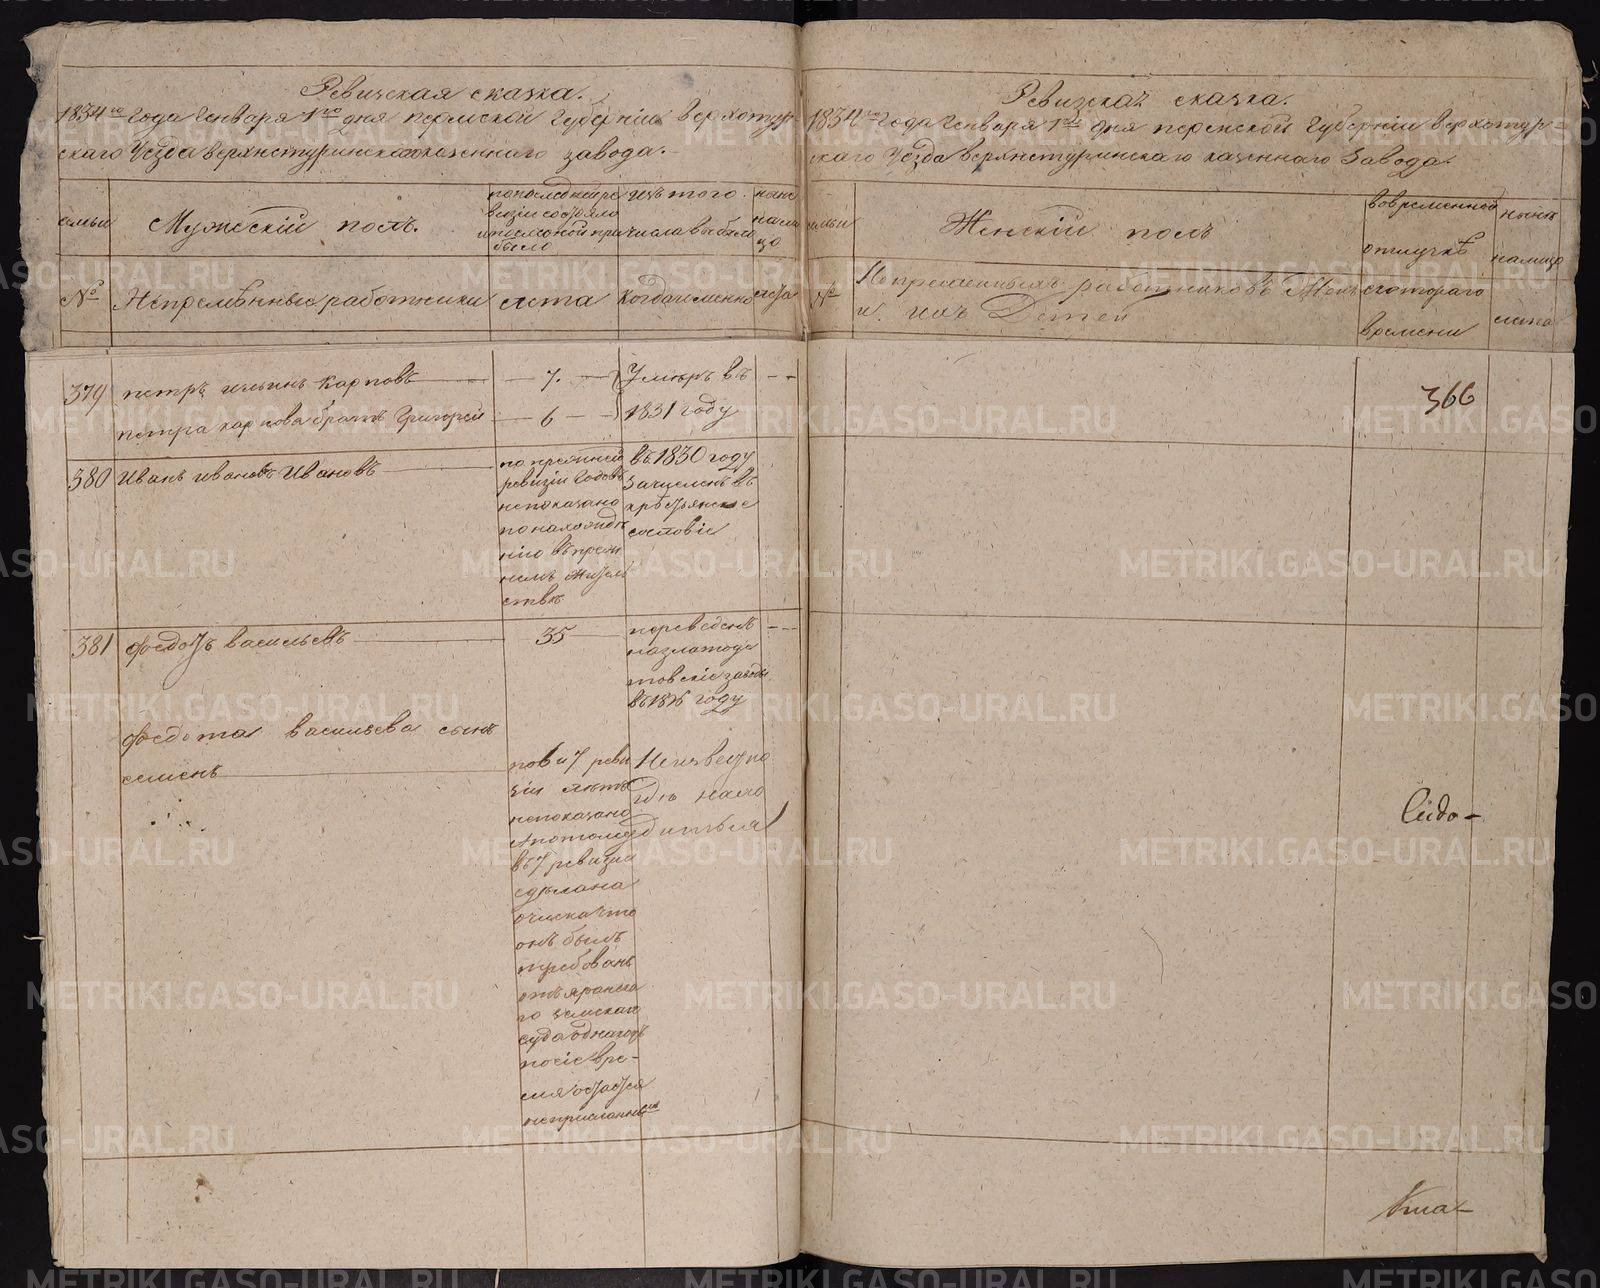 Ревизская сказка.
1834го Года Генваря 1го дня пермской Губерніи верхотур-
скаго Уезда верхнетуринскаго казеннаго завода.
семьи
Мужескій полъ.
по последней ре
визіи состояло
было
изъ того
числа выбыло
ныне
на ли
цо
№
Непремѣнные работники
лета
когда именно
лета
379
петръ ильинъ Карповъ
7.
Умеръ въ
петра карпова братъ Григорей
6
1831 году
380
Иванъ ивановъ Ивановъ
по прежней
ревизіи Годовъ
непоказано
по нахожде
нію въ преж
немъ жител
стве
въ 1830 году
зачисленъ въ
крестьянское
сословіе
381
федотъ васильевъ
35
переведенъ
на златоус
товскіе заводы
въ 1816 году
федота васильева сынъ
семенъ
по 6 и 7 реви
зіи летъ
непоказано
а потому
въ 7 ревизіи
сделана
очиска что
онъ былъ
требованъ
отъ яранска
го земскаго
суда однакожъ
по сіе вре-
мя остается
неприсланнымъ
Неизвестно
где нахо
дится
Ревизская сказка.
1834го Года Генваря 1го дня пермской Губерніи верхотур-
скаго Уезда верхнетуринскаго казеннаго Завода.
семьи
Женскій полъ
во временной
отлучкѣ
ныне
налицо
№
Непременныхъ работниковъ Жен
и ихъ Детей
с котораго
времени
лета
366
METRIKI.GASO-URAL.RU